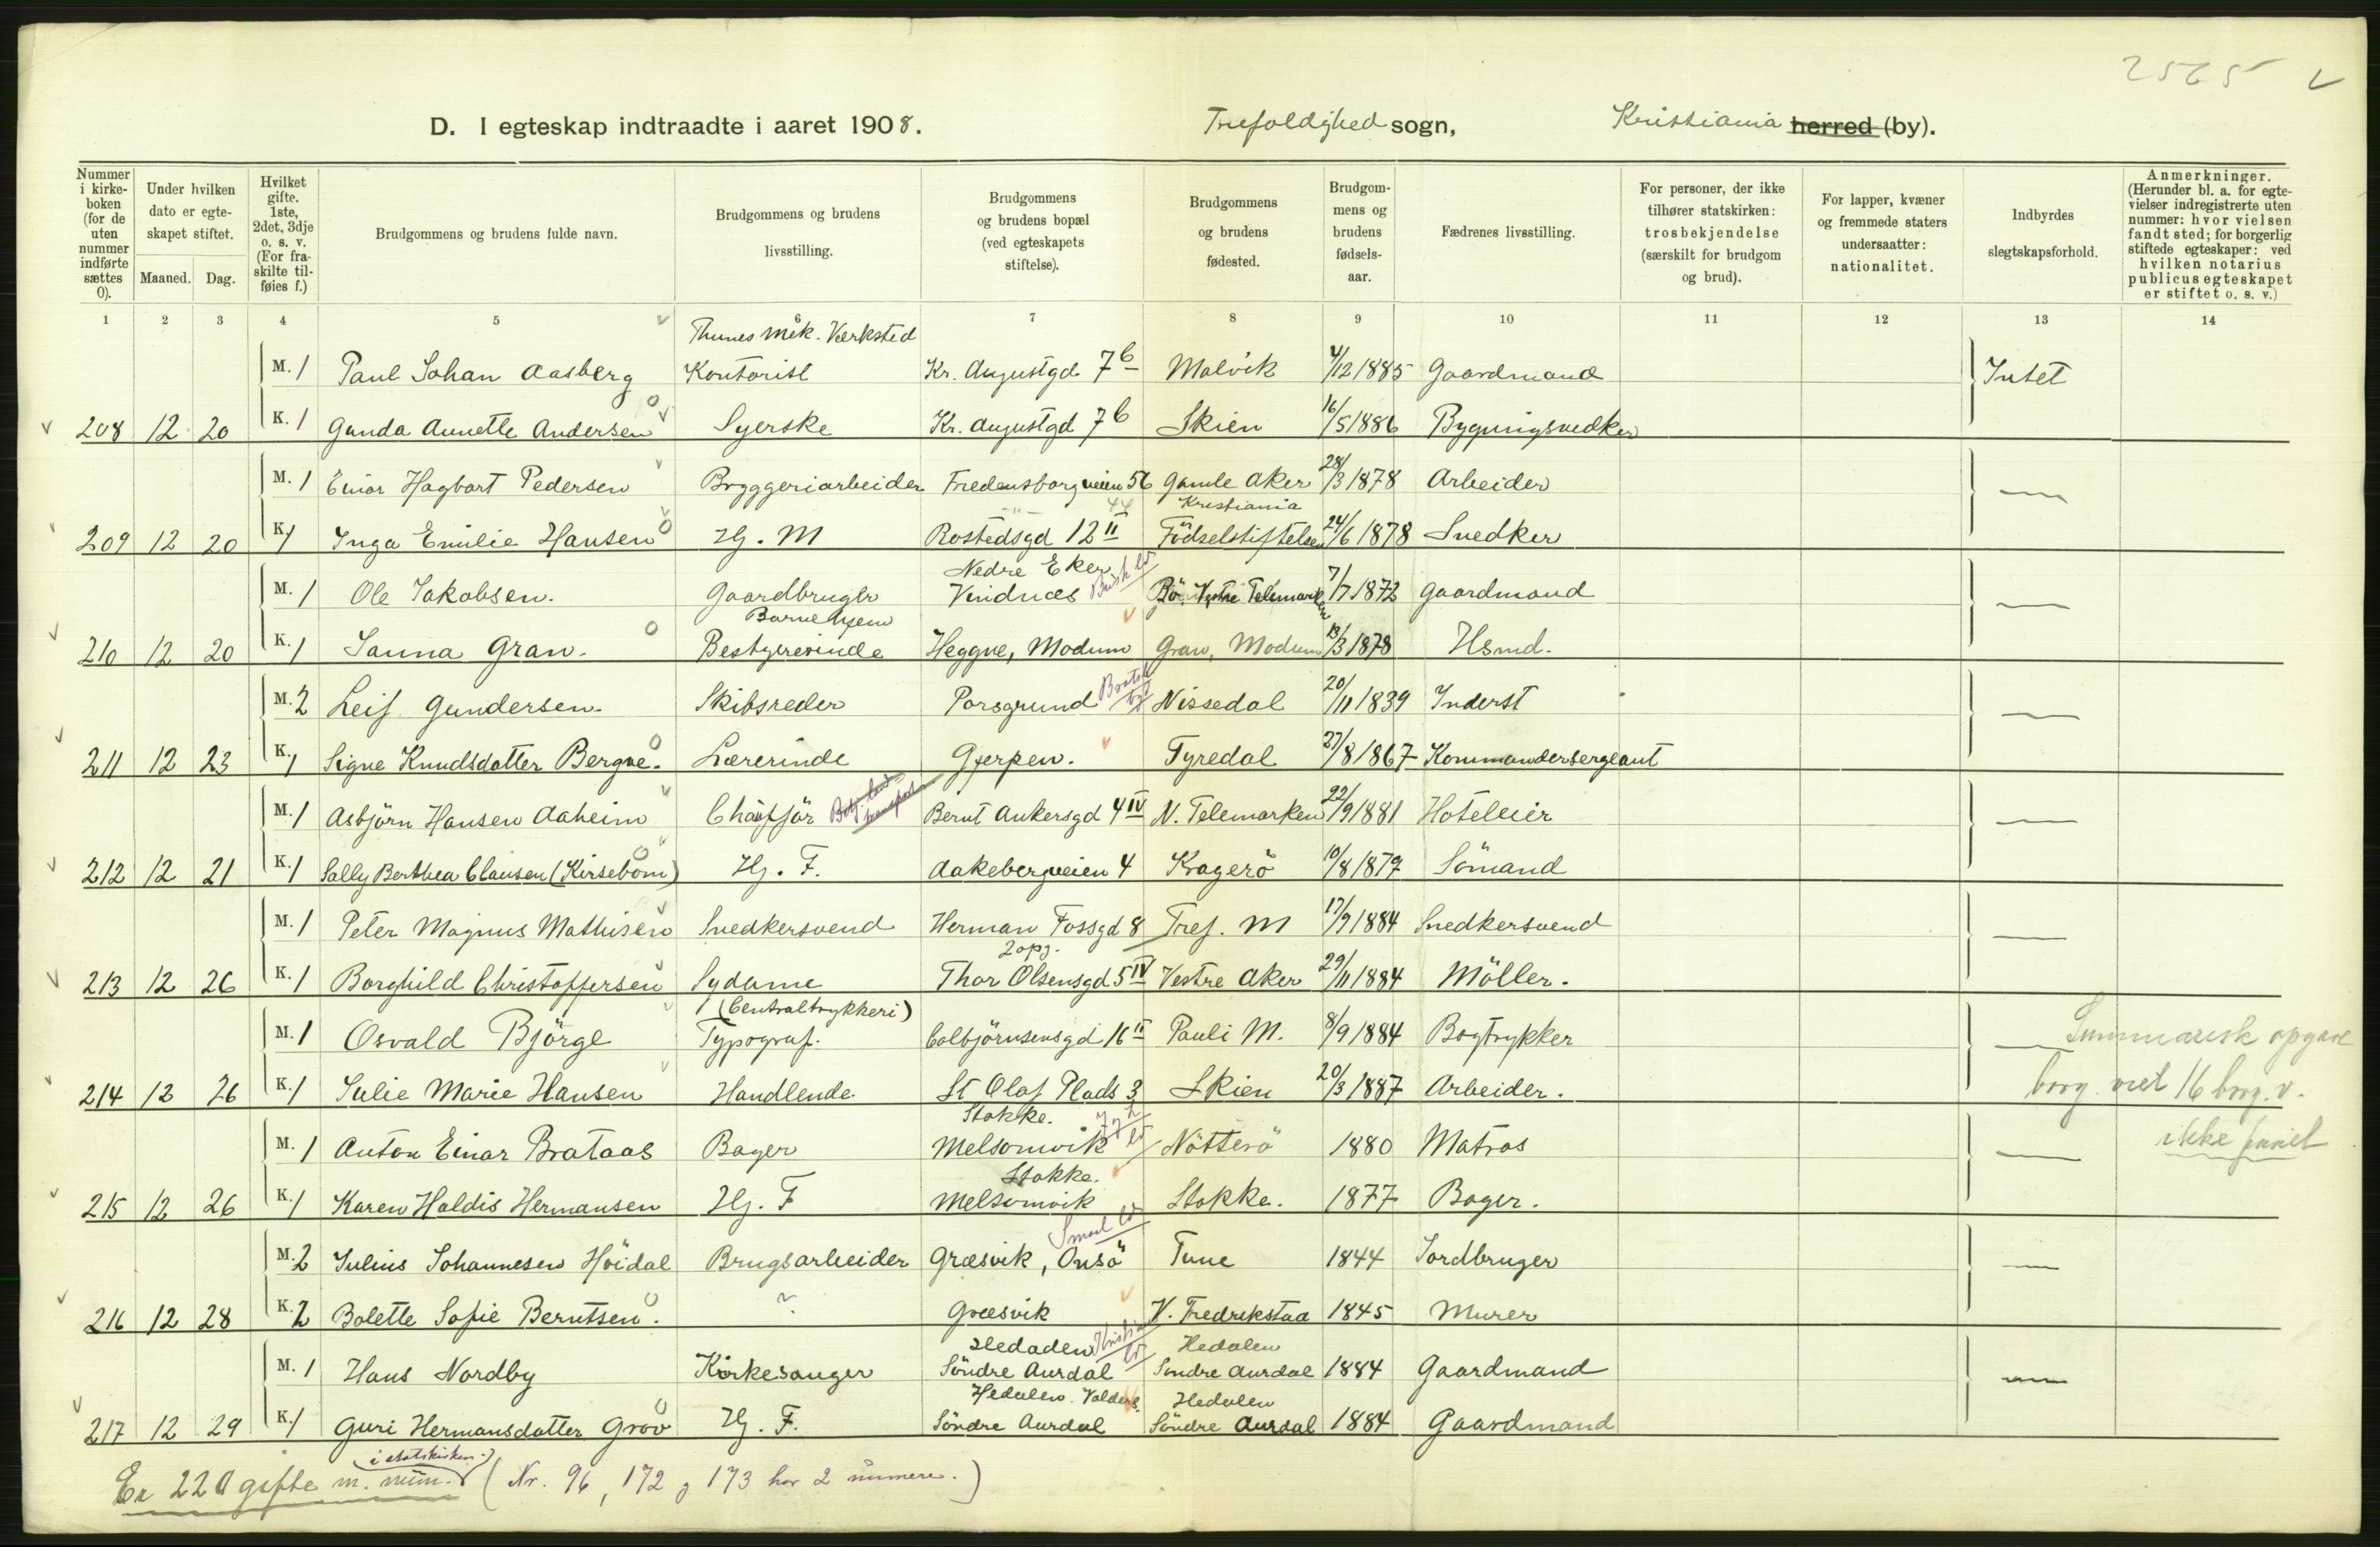 2565
D. I egteskap indtraadte i aaret 1908. Trefoldighed sogn, Kristiania herred (by).
Nummer i kirkeboken (for de uten nummer indførte sættes 0).
Under hvilken dato er egteskapet stiftet.
Maaned. Dag.
Hvilket gifte. 1ste, 2det, 3dje o. s. v. (For fraskilte tilføies f.)
Brudgommens og brudens fulde navn.
Brudgommens og brudens livsstilling.
Brudgommens og brudens bopæl (ved egteskapets stiftelse).
Brudgommens og brudens fødested.
Brudgommens og brudens fødselsaar.
Fædrenes livsstilling.
For personer, der ikke tilhører statskirken: trosbekjendelse (særskilt for brudgom og brud).
For lapper, kvæner og fremmede staters undersaatter: nationalitet.
Indbyrdes slegtskapsforhold.
Anmerkninger. (Herunder bl. a. for egtevielser indregistrerte uten nummer: hvor vielsen fandt sted; for borgerlig stiftede egteskaper: ved hvilken notarius publicus egteskapet er stiftet o. s. v.)
1 2 3 4 5 6 7 8 9 10 11 12 13 14
Thunes Mek. Værksted
M. 1 Paul Johan Aasberg Kontorist Kr. Augustgd 7b Malvik 4/12 1885 Gaardmand Intet
208 12 20 K. 1 Gunda Annette Andersen Syerske Kr. Augustgd 7b Skien 16/5 1886 Bygningsnedker
M. 1 Einar Hagbart Pedersen Bryggeriarbeider Fredensborgveien 56 Gamle Aker 28/3 1878 Arbeider —
44 Kristiania
209 12 20 K. 1 Inga Emilie Hansen Hj. M Rostedsgd 12 II Födselstiftelsen 24/6 1878 Snedker
Nedre Eker
M. 1 Ole Jakobsen. Gaardbruger Vindnæs Bö. Vestre Telemarken 7/7 1872 Gaardmand —
Barnehjem
210 12 20 K. 1 Janna Gran. Bestyrerinde Heggne, Modum Gran, Modum 13/3 1878 Hsmd.
M. 2 Leif Gundersen. Skibsreder Porsgrund Nissedal 20/11 1839 Inderst —
211 12 23 K. 1 Signe Knudsdatter Bergne. Lærerinde Gjerpen. Tyredal 27/8 1867 Kommandersergeant
M. 1 Asbjörn Hansen Aaheim Chäufför Bernt Ankersgd 4 IV N. Telemarken 22/9 1881 Hoteleier —
212 12 21 K. 1 Sally Berthea Clausen (Kirsebom) Hj. F. Aakebergveien 4 Kragerö 10/8 1879 Sömand
M. 1 Peter Magnus Mathisen Snedkersvend Herman Fossgd 8 Tref. M 17/9 1884 Snedkersvend —
2 opg.
213 12 26 K. 1 Borghild Christoffersen Sydame Thor Olsensgd 5 IV Vestre Aker 29/11 1884 Möller.
(Centraltrykkeri)
M. 1 Osvald Björge Typograf. Colbjörnsensgd 16 II Pauli M. 8/9 1884 Bogtrykker — Summarisk opgave
214 12 26 K. 1 Julie Marie Hansen Handlende. St Olaf Plads 3 Skien 20/3 1887 Arbeider. borg. viet 16 borg. v.
Stokke.
M. 1 Anton Einar Brataas Bager Melsomvik Nötterö 1880 Matros — ikke
Stokke.
215 12 26 K. 1 Karen Haldis Hermansen Hj. F Melsomvik Stokke. 1877 Bager.
M. 2 Julius Johannesen Höidal Brugsarbeider Græsvik, Onsö Tune 1844 Jordbruger —
216 12 28 K. 2 Bolette Sofie Berntsen. ? Græsvik V. Fredrikstad 1845 Murer
Hedalen Hedalen
M. 1 Hans Nordby Kirkesanger Söndre Aurdal Söndre Aurdal 1884 Gaardmand —
Hedalen. Valdres. Hedalen
217 12 29 K. 1 Guri Hermansdatter Gröv Hj. F. Söndre Aurdal Söndre Aurdal 1884 Gaardmand
i statskirken.
Er 220 gifte m. num. (Nr. 96, 172 og 173 har 2 numere.)